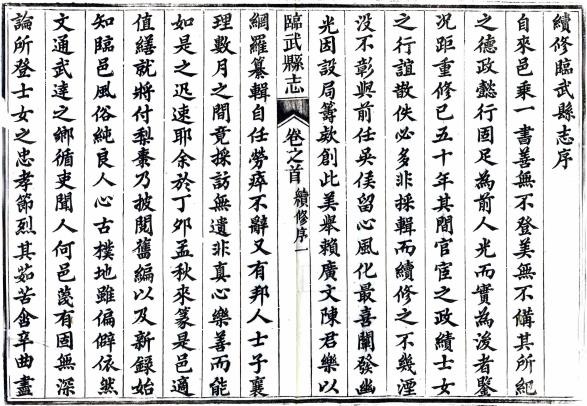 續修臨武縣志序
自來邑乘一書善無不登美無不備其所紀
之德政懿行固足為前人光而實為後者鑒
況距重修已五十年其間官宦之政績士女
之行誼散佚必多非採輯而續修之不幾湮
没不彰與前任吳侯留心風化最喜闡發幽
光因設局籌款創此美舉賴廣文陳君樂以
臨武縣志
卷之首
續修序一
網羅纂輯自任勞瘁不辭又有邦人士子襄
理數月之間竟採訪無遺非真心樂善而能
如是之迅速耶余於丁卯孟秋來篆是邑適
值繕就將付梨棗乃披閱舊編以及新錄始
知臨邑風俗純良人心古樸地雖偏僻依然
文通武達之鄉循吏聞人何邑蔑有固無深
論所登士女之忠孝節烈其茹苦含辛曲盡